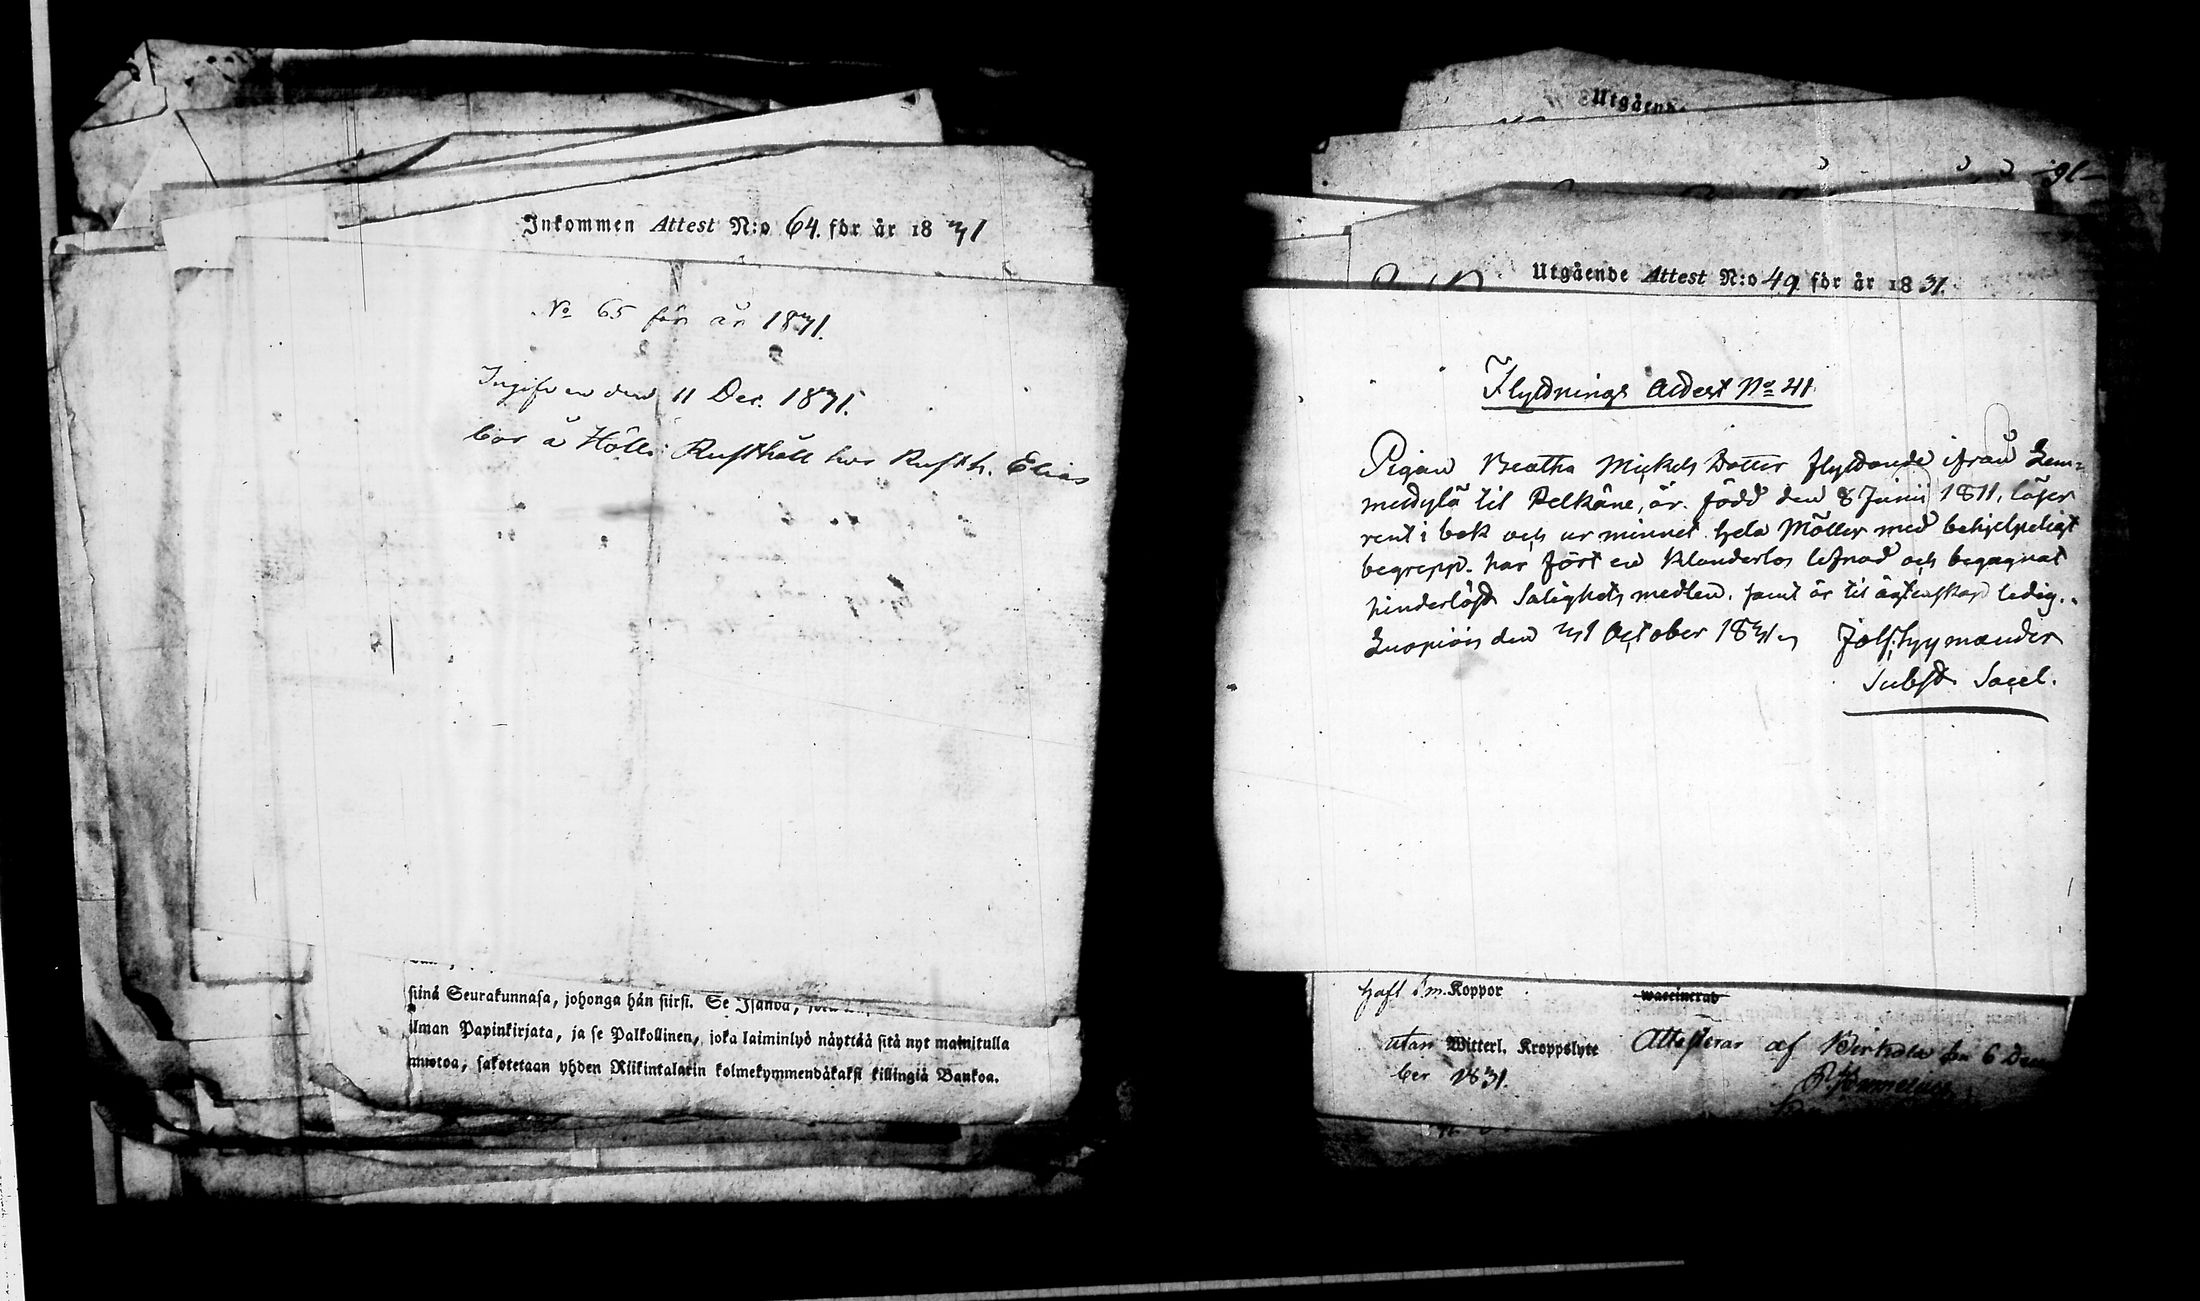 Inkommen Attest N:o 64. för år 1831
No 65 för år 1831.
Ingifven den 11 Dec. 1831.
bor å Hölli Rusthåll hos Rusth. Elias
siinä Seurakunnasa, johonga hän siirsi. Se Isändä,
ilman Papinkirjata, ja se Palkollinen, joka laiminlyö näyttää sitä nyt mainitulla
muotoa, sakotetaan yhden Riikintalarin kolmekymmendäkaksi killingiä Bankoa.
Utgående
Utgående Attest N:o 49 för år 1831.
Flyttnings Attest No 41.
Pigan Beatha Mickels Dotter flyttande ifrån Lem=
medylä til Pelkäne, är född den 8 Junii 1811, läser
rent i bok och ur minnet hela Möller med behjelpeligt
begrepp. har fört en klanderlös lefnad och begagnat
hinderlöst Salighets medlen. samt är til äktenskap ledig.
den 31 October 1831
Subst. Sacel.
haft Sm. Koppor vaccinerad
utan Witterl. Kroppslyte Attesterar af Birkala den 6 Decem
ber 1831.